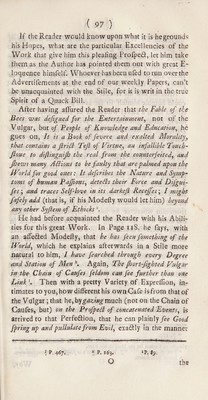 ( 97 )
If the Reader would know upon what it is he grounds
his Hopes, what are the particular Excellencies of the
Work that give him this pleasing Prospect, let him take
them as the Author has pointed them out with great E-
loquence himself. Whoever has been used to run over the
Advertisements at the end of our weekly Papers, can't
be unacquainted with the Stile, for it is writ in the true
Spirit of a Quack Bill.
After having assured the Reader that the Fable of the
Bees was designed for the Entertainment, not of the
Vulgar, but of People of Knowledge and Education, he
goes on, It is a Book of severe and exalted Morality,
that contains a strict Test of Virtue, an infallible Touch-
stone to distinguish the real from the counterfeited, and
shews many Actions to be faulty that are palmed upon the
World for good ones: It describes the Nature and Symp-
toms of human Passions, detects their Force and Disgui-
ses; and traces Self-love in its darkest Recesses; I might
safely add (that is, if his Modesty would let him) beyond
any other System of Ethicks.
He had before acquainted the Reader with his Abili-
ties for this great Work. In Page 118. he says, with
an affected Modesty, that he has seen something of the
World, which he explains afterwards in a Stile more
natural to him, I have searched through every Degree
and Station of Men. Again, The short-sighted Vulgar
in the Chain of Causes seldom can see further than one
Link. Then with a pretty Variety of Expression, in-
timates to you, how different his own Case is from that of
the Vulgar; that he, by gazing much (not on the Chain of
Causes, but) on the Prospect of concatenated Events, is
arrived to that Perfection, that he can plainly see Good
spring up and pullulate from Evil, exactly in the manner
P. 467.
O
the